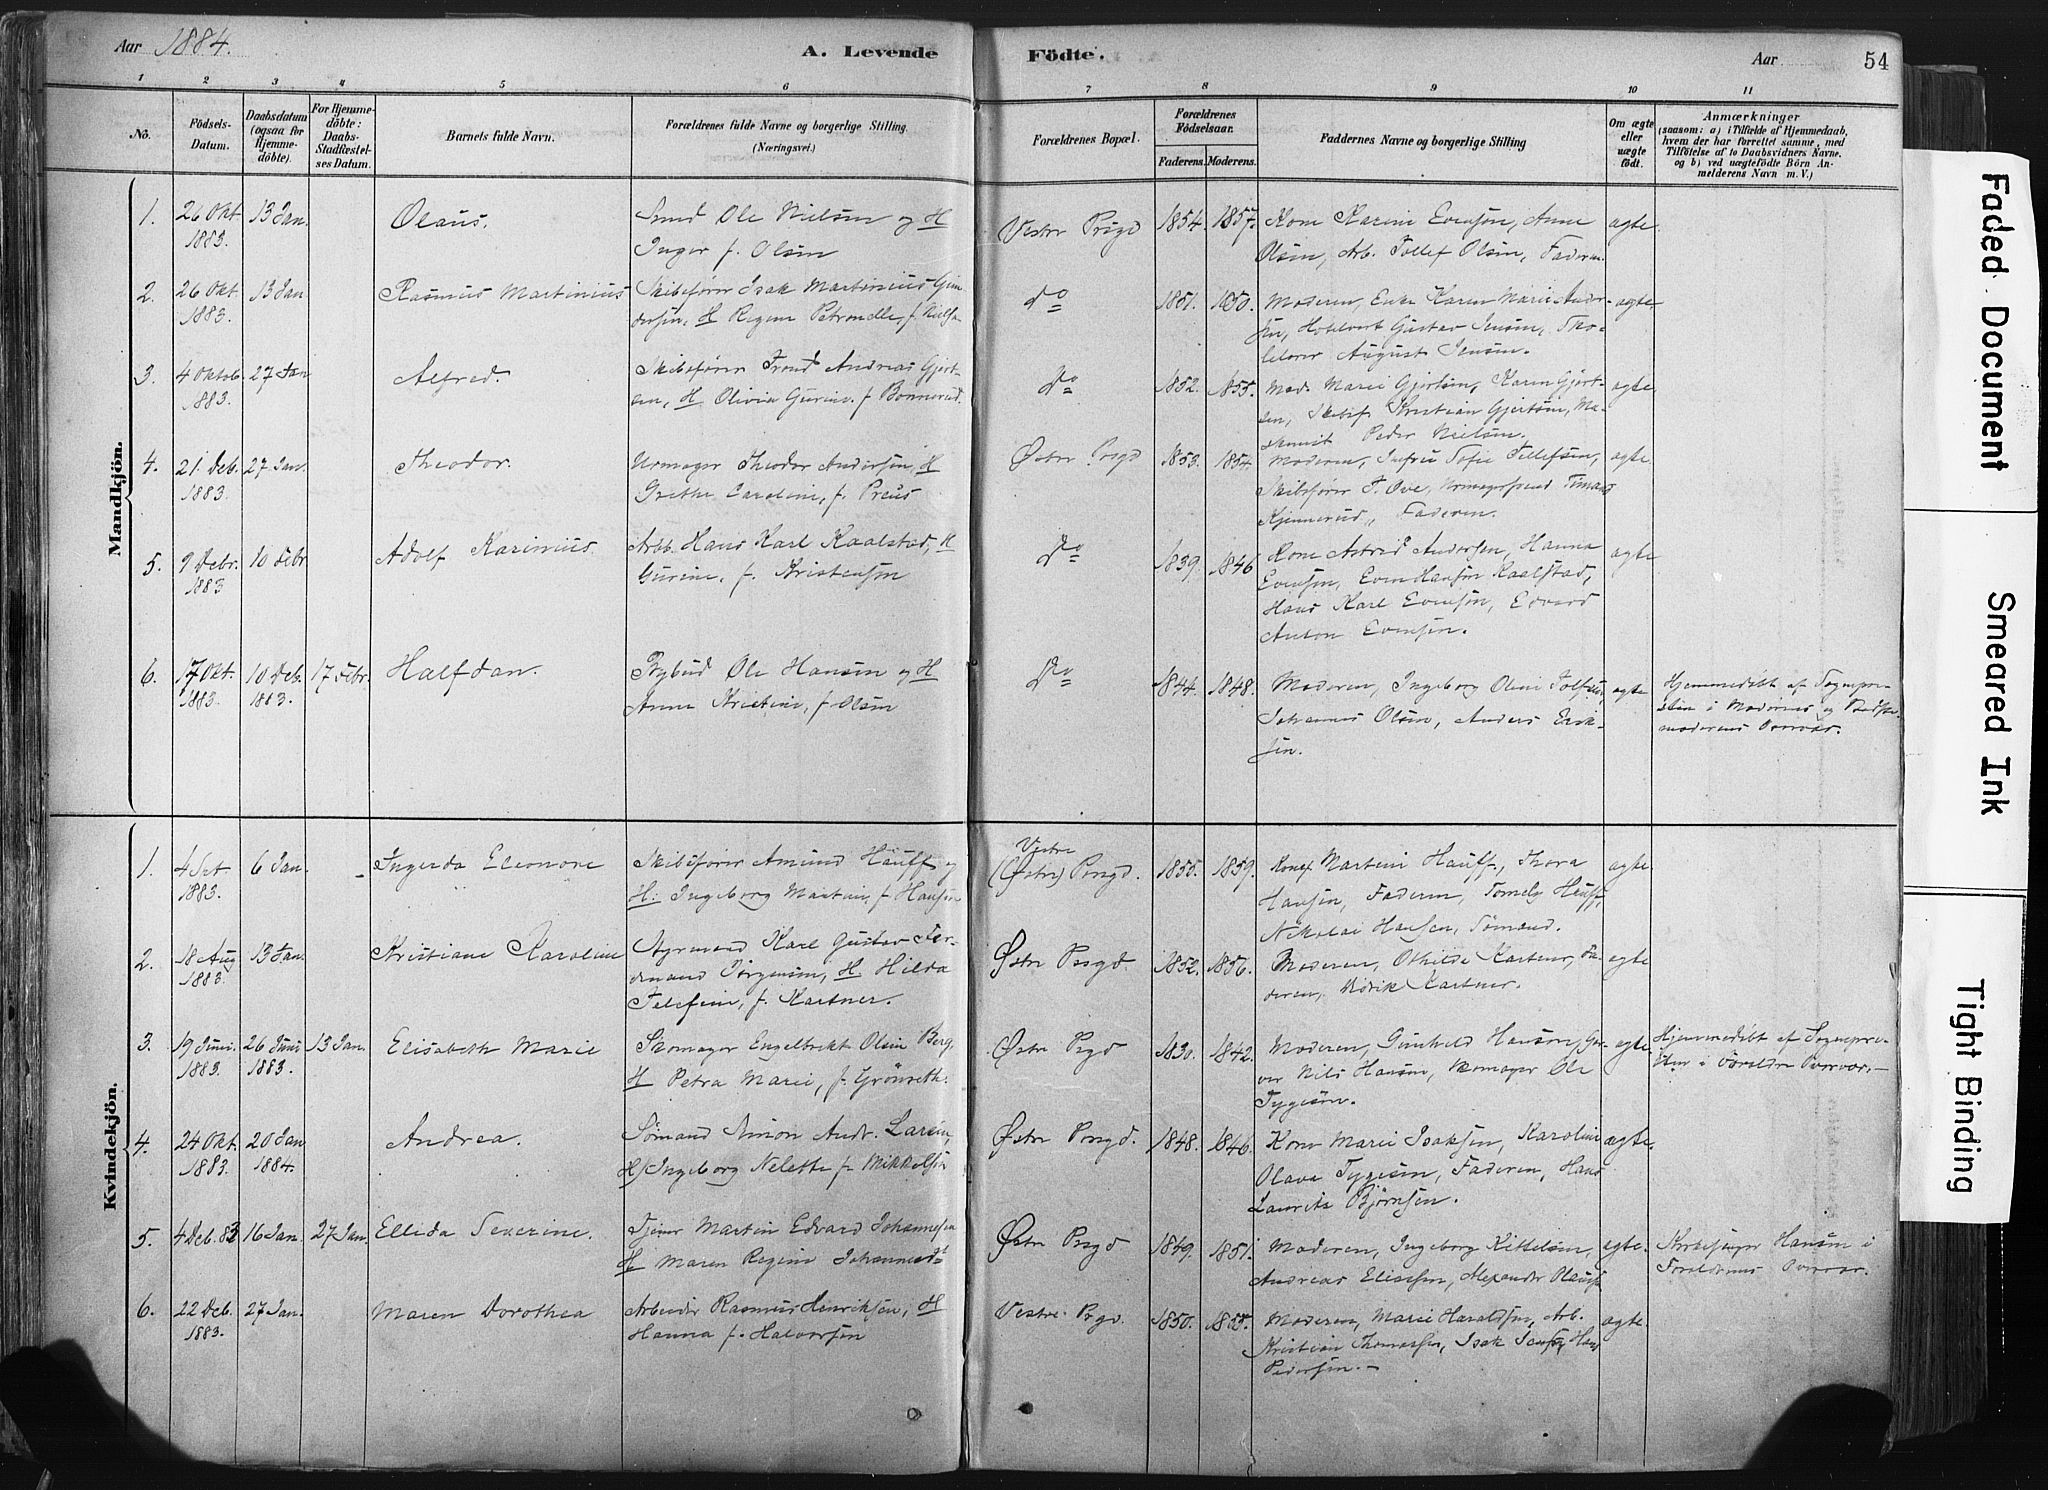 Aar 1884.
A. Levende
Födte.
Aar
54
1 2 3 4 5 6 7 8 9 10 11
No.
Fødsels-
Datum.
Daabsdatum
(ogsaa for
Hjemme-
döbte).
For Hjemme-
döbte:
Daabs-
Stadfæstel-
ses Datum.
Barnets fulde Navn.
Forældrenes fulde Navne og borgerlige Stilling.
(Næringsvei.)
Forældrenes Bopæl.
Forældrenes
Födselsaar.
Faderens. Moderens.
Faddernes Navne og borgerlige Stilling
Om ægte
eller
uægte
födt.
Anmærkninger
(saasom: a) i Tilfælde af Hjemmedaab,
hvem der har forrettet samme, med
Tilföielse af to Daabsvidners Navne.
og b) ved uægtefödte Börn An-
melderens Navn m. V.)
Mandkjön.
1. 26 Okt. 1883. 13 Jan. Olaus.
Smed Ole Nielsen og H
Inger f. Olsen
Vestre Prgd 1854. 1857.
Kone Karine Evensen, Anne
Olsen, Arb. Tollef Olsen, Faderen.
ægte.
2. 26 Okt. 1883. 13 Jan Rasmus Martinius
Skibsfører Isak Martinius Gun-
dersen, H Regine Petronelle, f. Niels.
do 1851. 1850.
Moderen, Enke Karen Marie Ander-
sen, Hotelvert Gustav Jensen,
August Jensen.
ægte
3. 4 Oktob. 1883. 27 Jan Alfred.
Skibsfører Trond Andreas Gjert-
sen, H Olivia Gurine f Bonnerud.
do 1852. 1855.
Mod. Marie Gjertsen, Karen Gjert-
sen, Skibsf. Kristian Gjertsen, Ma-
skinist Peder Nielsen.
ægte
4. 21. Deb. 1883. 27 Jan. Theodor.
Urmager Theodor Andersen, H
Grethe Caroline, f. Preus
Østre Prgd 1853. 1854.
Moderen, Jnfru Sofie Tellefsen,
Skibsfører T. Ove, Urmagersvend
Kjennerud, Faderen.
ægte.
5. 9 Debr. 1883 10 Febr Adolf Karinius.
Arb. Hans Karl Kaalstad, H
Gurine, f. Kristensen
do 1839. 1846
Kone Astrid Andersen, Hanna
Evensen, Even Hansen Kaalstad,
Hans Karl Evensen, Edvard
Anton Evensen.
ægte
6. 17 Okt. 1883. 10 Deb. 1883. 17 Febr. Halfdan.
Ole Hansen og H
Anne Kristine, f Olsen
do 1844. 1848.
Moderen, Ingeborg Oline Tolfsen,
Johannes Olsen, Anders Erik-
sen.
ægte
Hjemmedøbt af Sognepre-
sten i Moderens og Bedste-
moderens Overvær.
Kvindekjön.
1. 4 Set. 1883. 6 Jan. Ingerda Eleonore
Skibsfører Amund Hauff og
H. Ingeborg Martine, f. Hansen
Vestre
(Østre) Prgd. 1855. 1859.
Kone Martine Hauff, Thora
Hansen, Faderen, Hauff,
Nikolai Hansen, Sømand.
ægte.
2. 18 Aug 1883. 13 Jan. Kristiane Karoline
Styrmand Karl Gustav Fer-
dinand Jørgensen, H Hilda
Telefine, f. Kartner.
Østre Prgd. 1852. 1856.
Moderen, Othilde Kartner, Fa-
deren, Kartner.
ægte
3. 19 Juni. 1883. 26 Juni 1883. 13 Jan. Elisabeth Marie
Skomager Engeltrekt Olsen Berg.
H Petra Marie, f. Grönseth.
Østre Prgd 1830. 1842.
Moderen, Gunhild Hansen, Gar-
ver Nils Hansen, Skomager Ole
Tygesen.
ægte,
Hjemmedöbt af Sognepre-
sten i Foræld. Overvær.
4. 24 Okt 1883. 20 Jan 1884. Andrea.
Sømand Simon Andr. Larsen,
H. Ingeborg Nelette f. Mikkelsen
Østre Prgd. 1848. 1846.
Kone Marie Isaksen, Karoline
Olava Tygesen, Faderen, Hans
Laurits Björnsen.
ægte.
5. 4 Deb. 83 16 Jan. 27 Jan. Ellida Severine.
Martin Edvard Johannesen
H. Maren Regine Johannesd.
Østre Prgd 1849. 1851.
Moderen, Ingeborg Kittelsen,
Andreas Elisesen, Alexander Olausen
ægte.
Kirkesanger Hansen i
Forældrenes Overvær.
6. 22 Deb. 1883. 27 Jan. Maren Dorothea
Arbeider Rasmus Henriksen, H
Hanna f. Halvorsen
Vestre Prgd. 1850. 1855.
Moderen, Marie Haraldsen, Arb.
Kristian Thomassen, Isak Jensen, Hans
Pedersen.
ægte.
Faded Document
Smeared Ink
Tight Binding